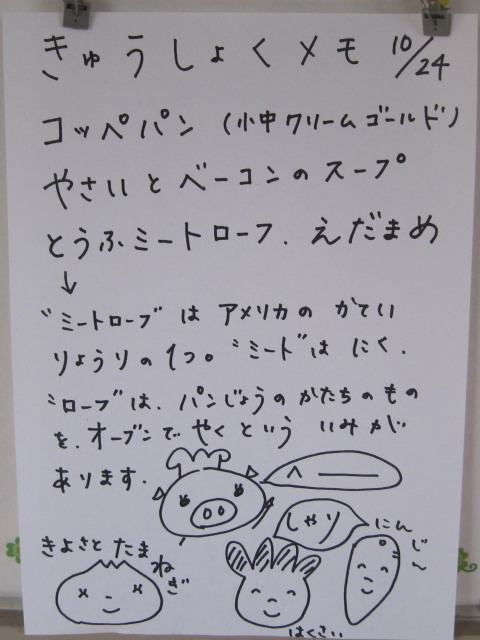 きゅうしょくメモ 10/24
コッペパン (小中クリームゴールド)
やさいとベーコンのスープ
とうふミートローフ. えだまめ
↓
“ミートローブ” は アメリカの かてい
りょうりの1つ。“ミート”は にく.
“ローブ”は. パンじょうのかたちのもの
を.オーブンで やく という いみが
あります.
へ——
しゃり
にんじ〜
きよさと たまねぎ
はくさい